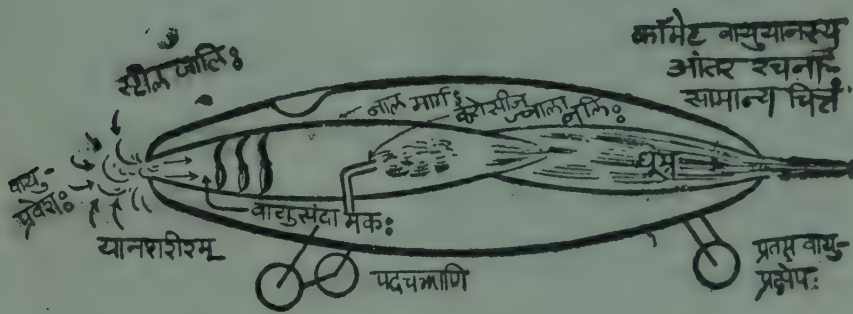 कॉमेट वायुयानस्य
आंतर रचना-
सामान्य चित्रं
स्टील जालिः
नाल मार्गः
केरोसीन ज्वाला
वायु-
प्रवेशः
धूम्र
वायुसंदामकः
यानशरीरम्
पदचक्राणि
प्रतप्त वायु-
प्रक्षेपः